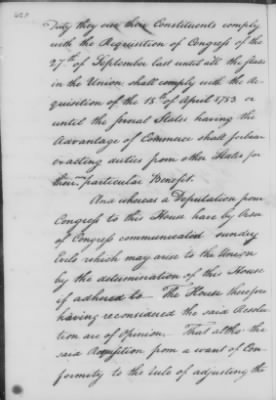 Duty they owe their Constituents comply
with the Requisition of Congress of the
27th of September last until all the States
in the Union shall comply with the Re-
quisition of the 18th of April 1783 or
until the several States having the
Advantage of Commerce shall forbear
exacting duties from other States for
their particular Benefit.
And whereas a Deputation from
Congress to this House have by Order
of Congress communicated sundry
Evils which may arise to the Union
by the determination of this House
if adhered to. The House therefore
having reconsidered the said Resolu-
tion are of Opinion. That altho the
said Requisition from a want of Con-
formity to the Rule of adjusting the